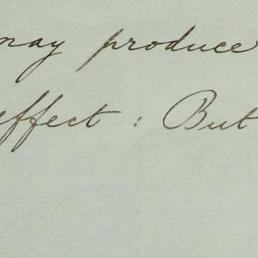 may produce
effect : But